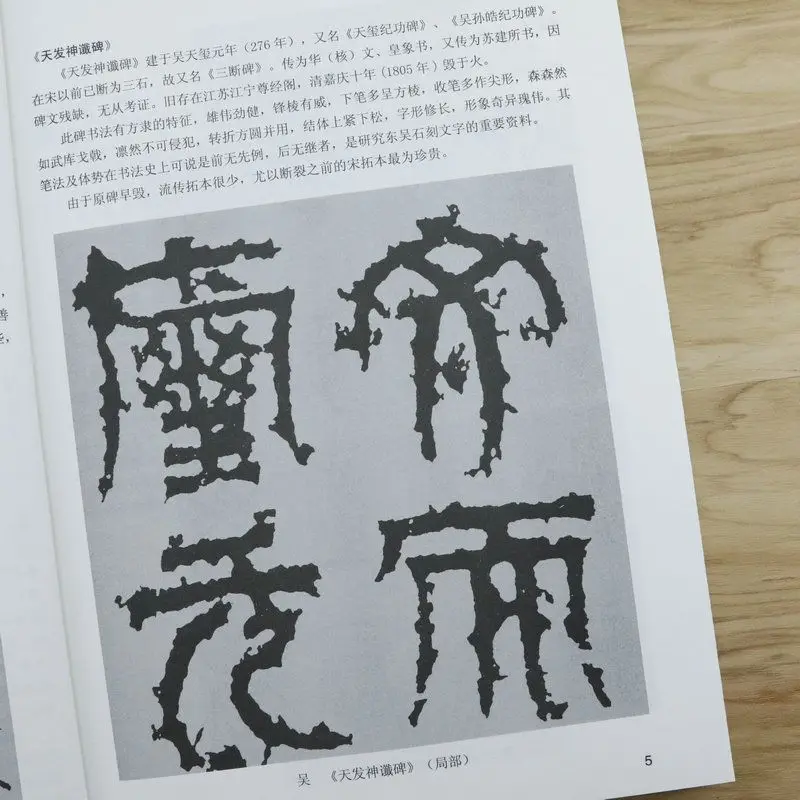 善
《天发神谶碑》
《天发神谶碑》建于吴天玺元年（276年），又名《天玺纪功碑》、《吴孙皓纪功碑》。
在宋以前已断为三石，故又名《三断碑》。传为华（核）文、皇象书，又传为苏建所书，因
碑文残缺，无从考证。旧存在江苏江宁尊经阁，清嘉庆十年（1805年）毁于火。
此碑书法有方隶的特征，雄伟劲健，锋棱有威，下笔多呈方棱，收笔多作尖形，森森然
如武库戈戟，凛然不可侵犯，转折方圆并用，结体上紧下松，字形修长，形象奇异瑰伟。其
笔法及体势在书法史上可说是前无先例，后无继者，是研究东吴石刻文字的重要资料。
由于原碑早毁，流传拓本很少，尤以断裂之前的宋拓本最为珍贵。
璽
元
吴 《天发神谶碑》（局部）
5